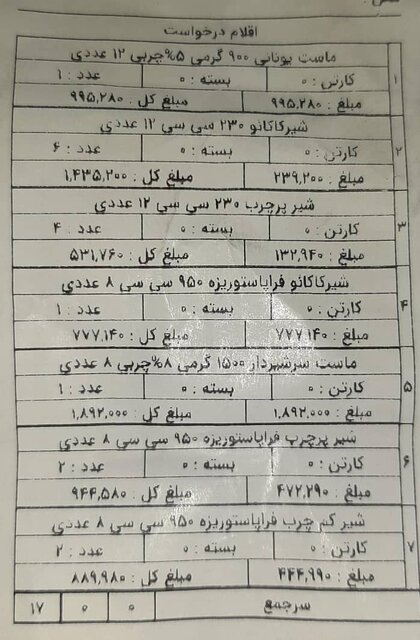 اقلام درخواست
۱
ماست یونانی ۹۰۰ گرمی ۵%چربی ۱۲ عددی
کارتن : ۰ بسته : ۰ عدد : ۱
مبلغ : ۹۹۵,۲۸۰ مبلغ کل : ۹۹۵,۲۸۰
۲
شیرکاکائو ۲۳۰ سی سی ۱۲ عددی
کارتن : ۰ بسته : ۰ عدد : ۶
مبلغ : ۲۳۹,۲۰۰ مبلغ کل : ۱,۴۳۵,۲۰۰
۳
شیر پرچرب ۲۳۰ سی سی ۱۲ عددی
کارتن : ۰ بسته : ۰ عدد : ۴
مبلغ : ۱۳۲,۹۴۰ مبلغ کل : ۵۳۱,۷۶۰
۴
شیرکاکائو فراپاستوریزه ۹۵۰ سی سی ۸ عددی
کارتن : ۰ بسته : ۰ عدد : ۱
مبلغ : ۷۷۷,۱۴۰ مبلغ کل : ۷۷۷,۱۴۰
۵
ماست سرشیردار ۱۵۰۰ گرمی ۸%چربی ۸ عددی
کارتن : ۰ بسته : ۰ عدد : ۱
مبلغ : ۱,۸۹۲,۰۰۰ مبلغ کل : ۱,۸۹۲,۰۰۰
۶
شیر پرچرب فراپاستوریزه ۹۵۰ سی سی ۸ عددی
کارتن : ۰ بسته : ۰ عدد : ۲
مبلغ : ۴۷۲,۲۹۰ مبلغ کل : ۹۴۴,۵۸۰
۷
شیر کم چرب فراپاستوریزه ۹۵۰ سی سی ۸ عددی
کارتن : ۰ بسته : ۰ عدد : ۲
مبلغ : ۴۴۴,۹۹۰ مبلغ کل : ۸۸۹,۹۸۰
سرجمع ۰ ۰ ۱۷